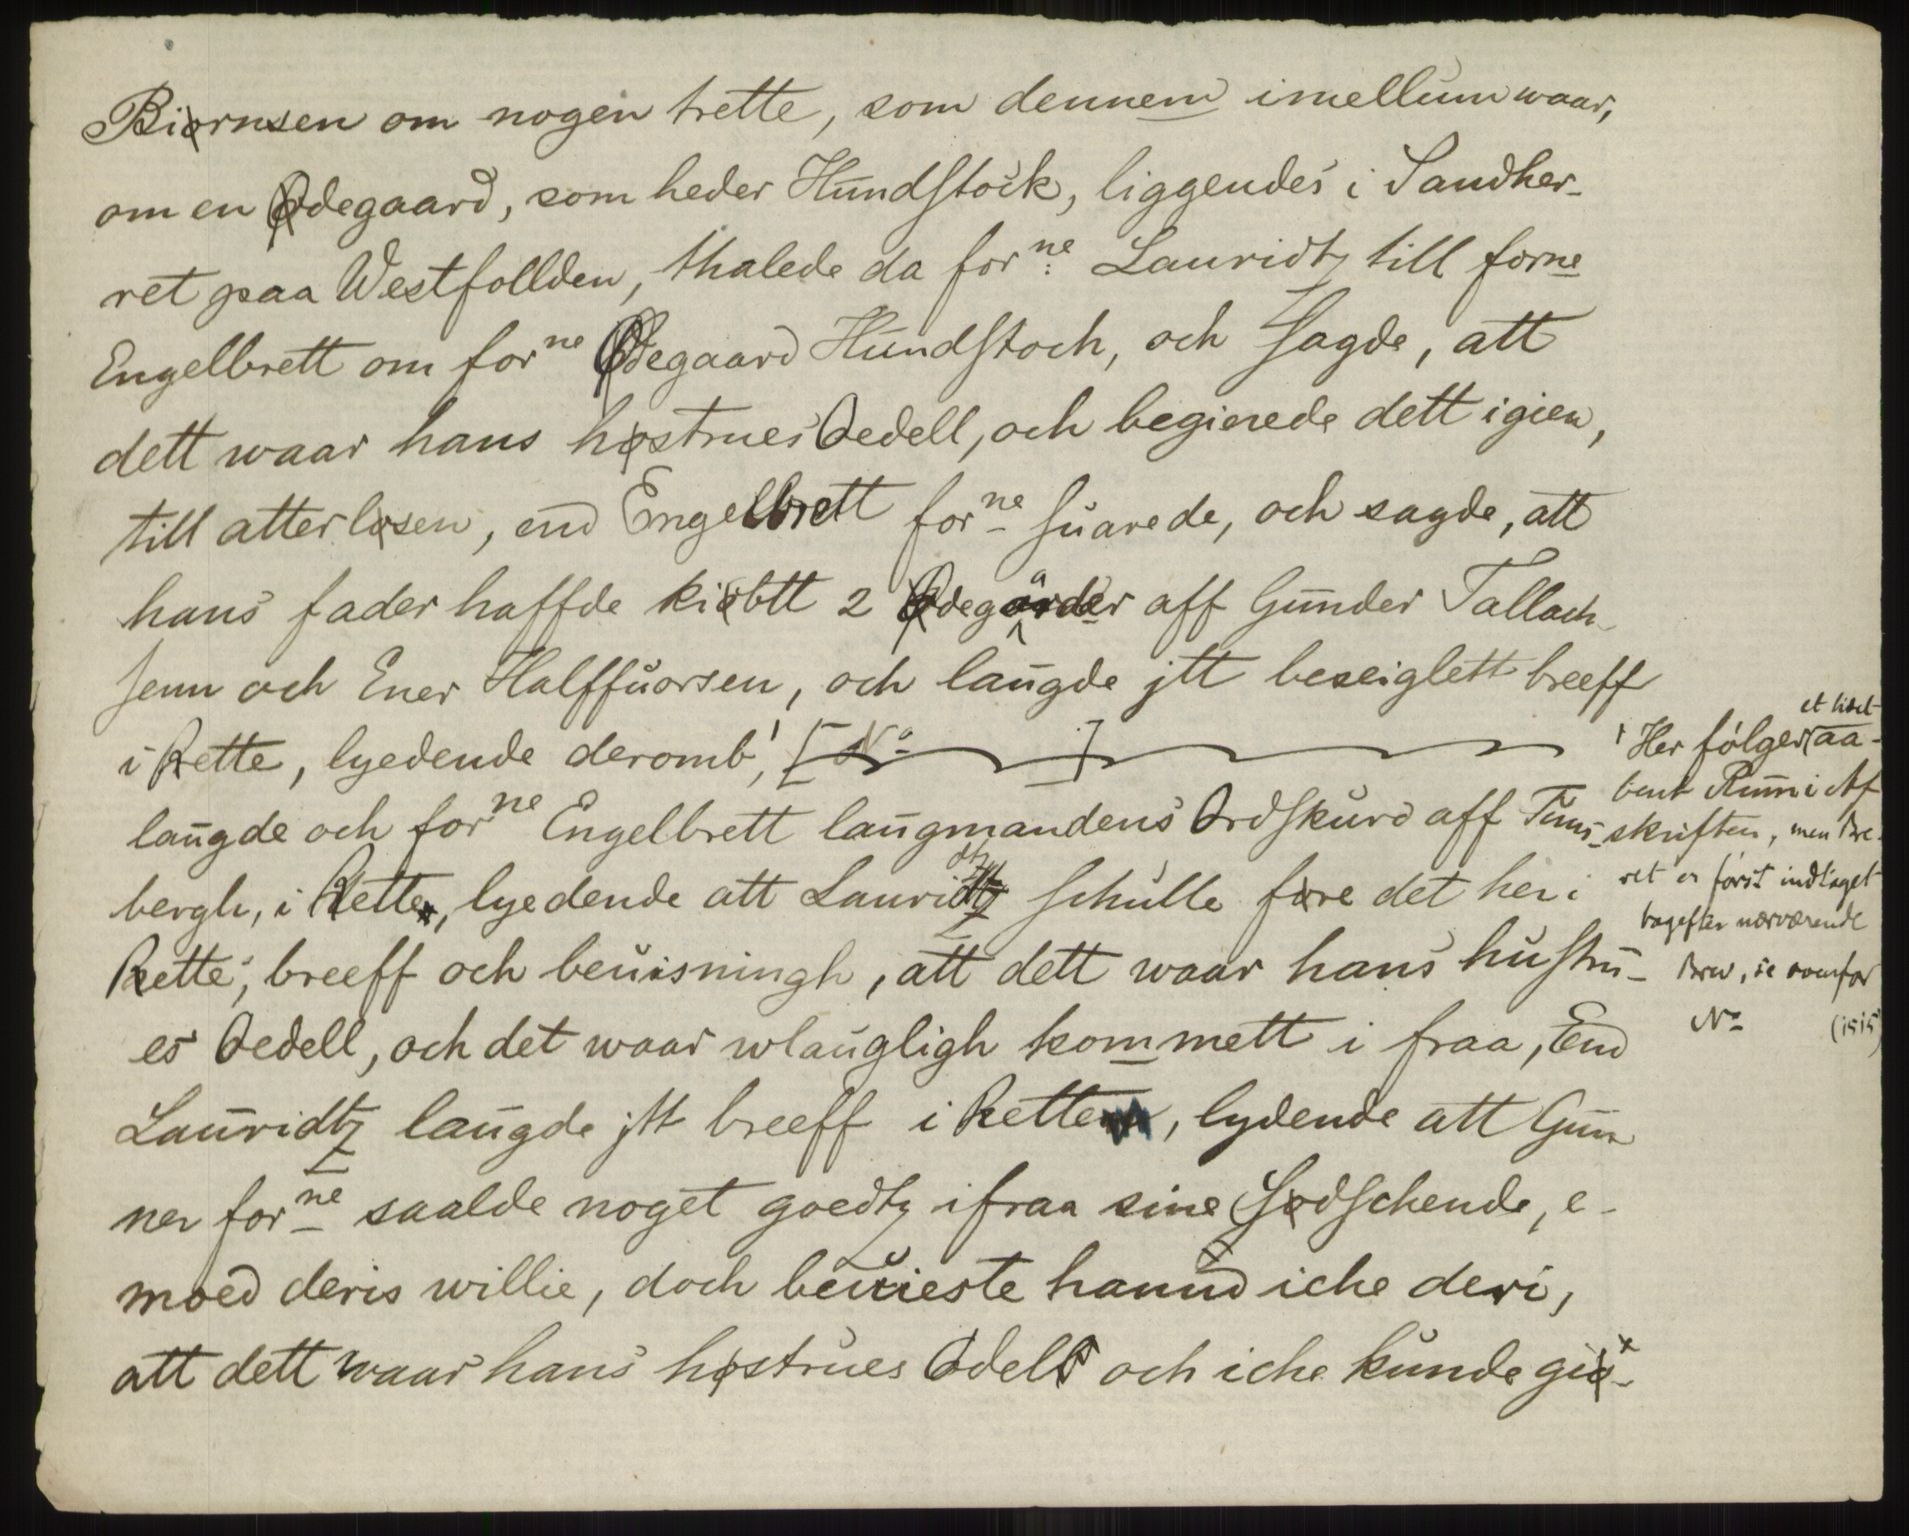 Biørnsen om nogen trette, som dennem imellum waar,
om en Ødegaard, som heder Hundstock, liggendes i Sandher-
ret paa Westfollden, thalede da forne Lauridtz till forne
Engelbrett om forne Ødegaard Hundstoch, och sagde, att
dett waar hans høstrues Oedell, och begierede dett igien,
till atterløsen, end Engelbrett forne suarede, och sagde, att
hans fader haffde kiøbtt 2 Ødegårder aff Gunder Tallach-
senn och Ener Halffuorsen, och laugde jtt beseiglett breeff
i Rette, lyedende deromb,¹ [N°]
laugde och forne Engelbrett laugmandens Ordskurd aff Tuns-
bergh, i Rette, lyedende att Lauridtz schulle føre det her i
Rette, breeff och beuisningh, att dett waar hans hustru-
es Oedell, och det waar wlaugligh kommett i fraa, End
Lauridtz laugde jtt breeff i Rette, lydende att Gun
ner forne saalde noget goedtz ifraa sine Sødschende, e-
moed deris willie, doch beuieste hannd iche deri,
att dett waar hans høstrues Odell och iche kunde giø-
¹ Her følger et lidet aa-
bent Rum i Af
skriften, men Bre-
vet er først indtaget
bagefter nærværende
Brev, se ovenfor
N° (1515)